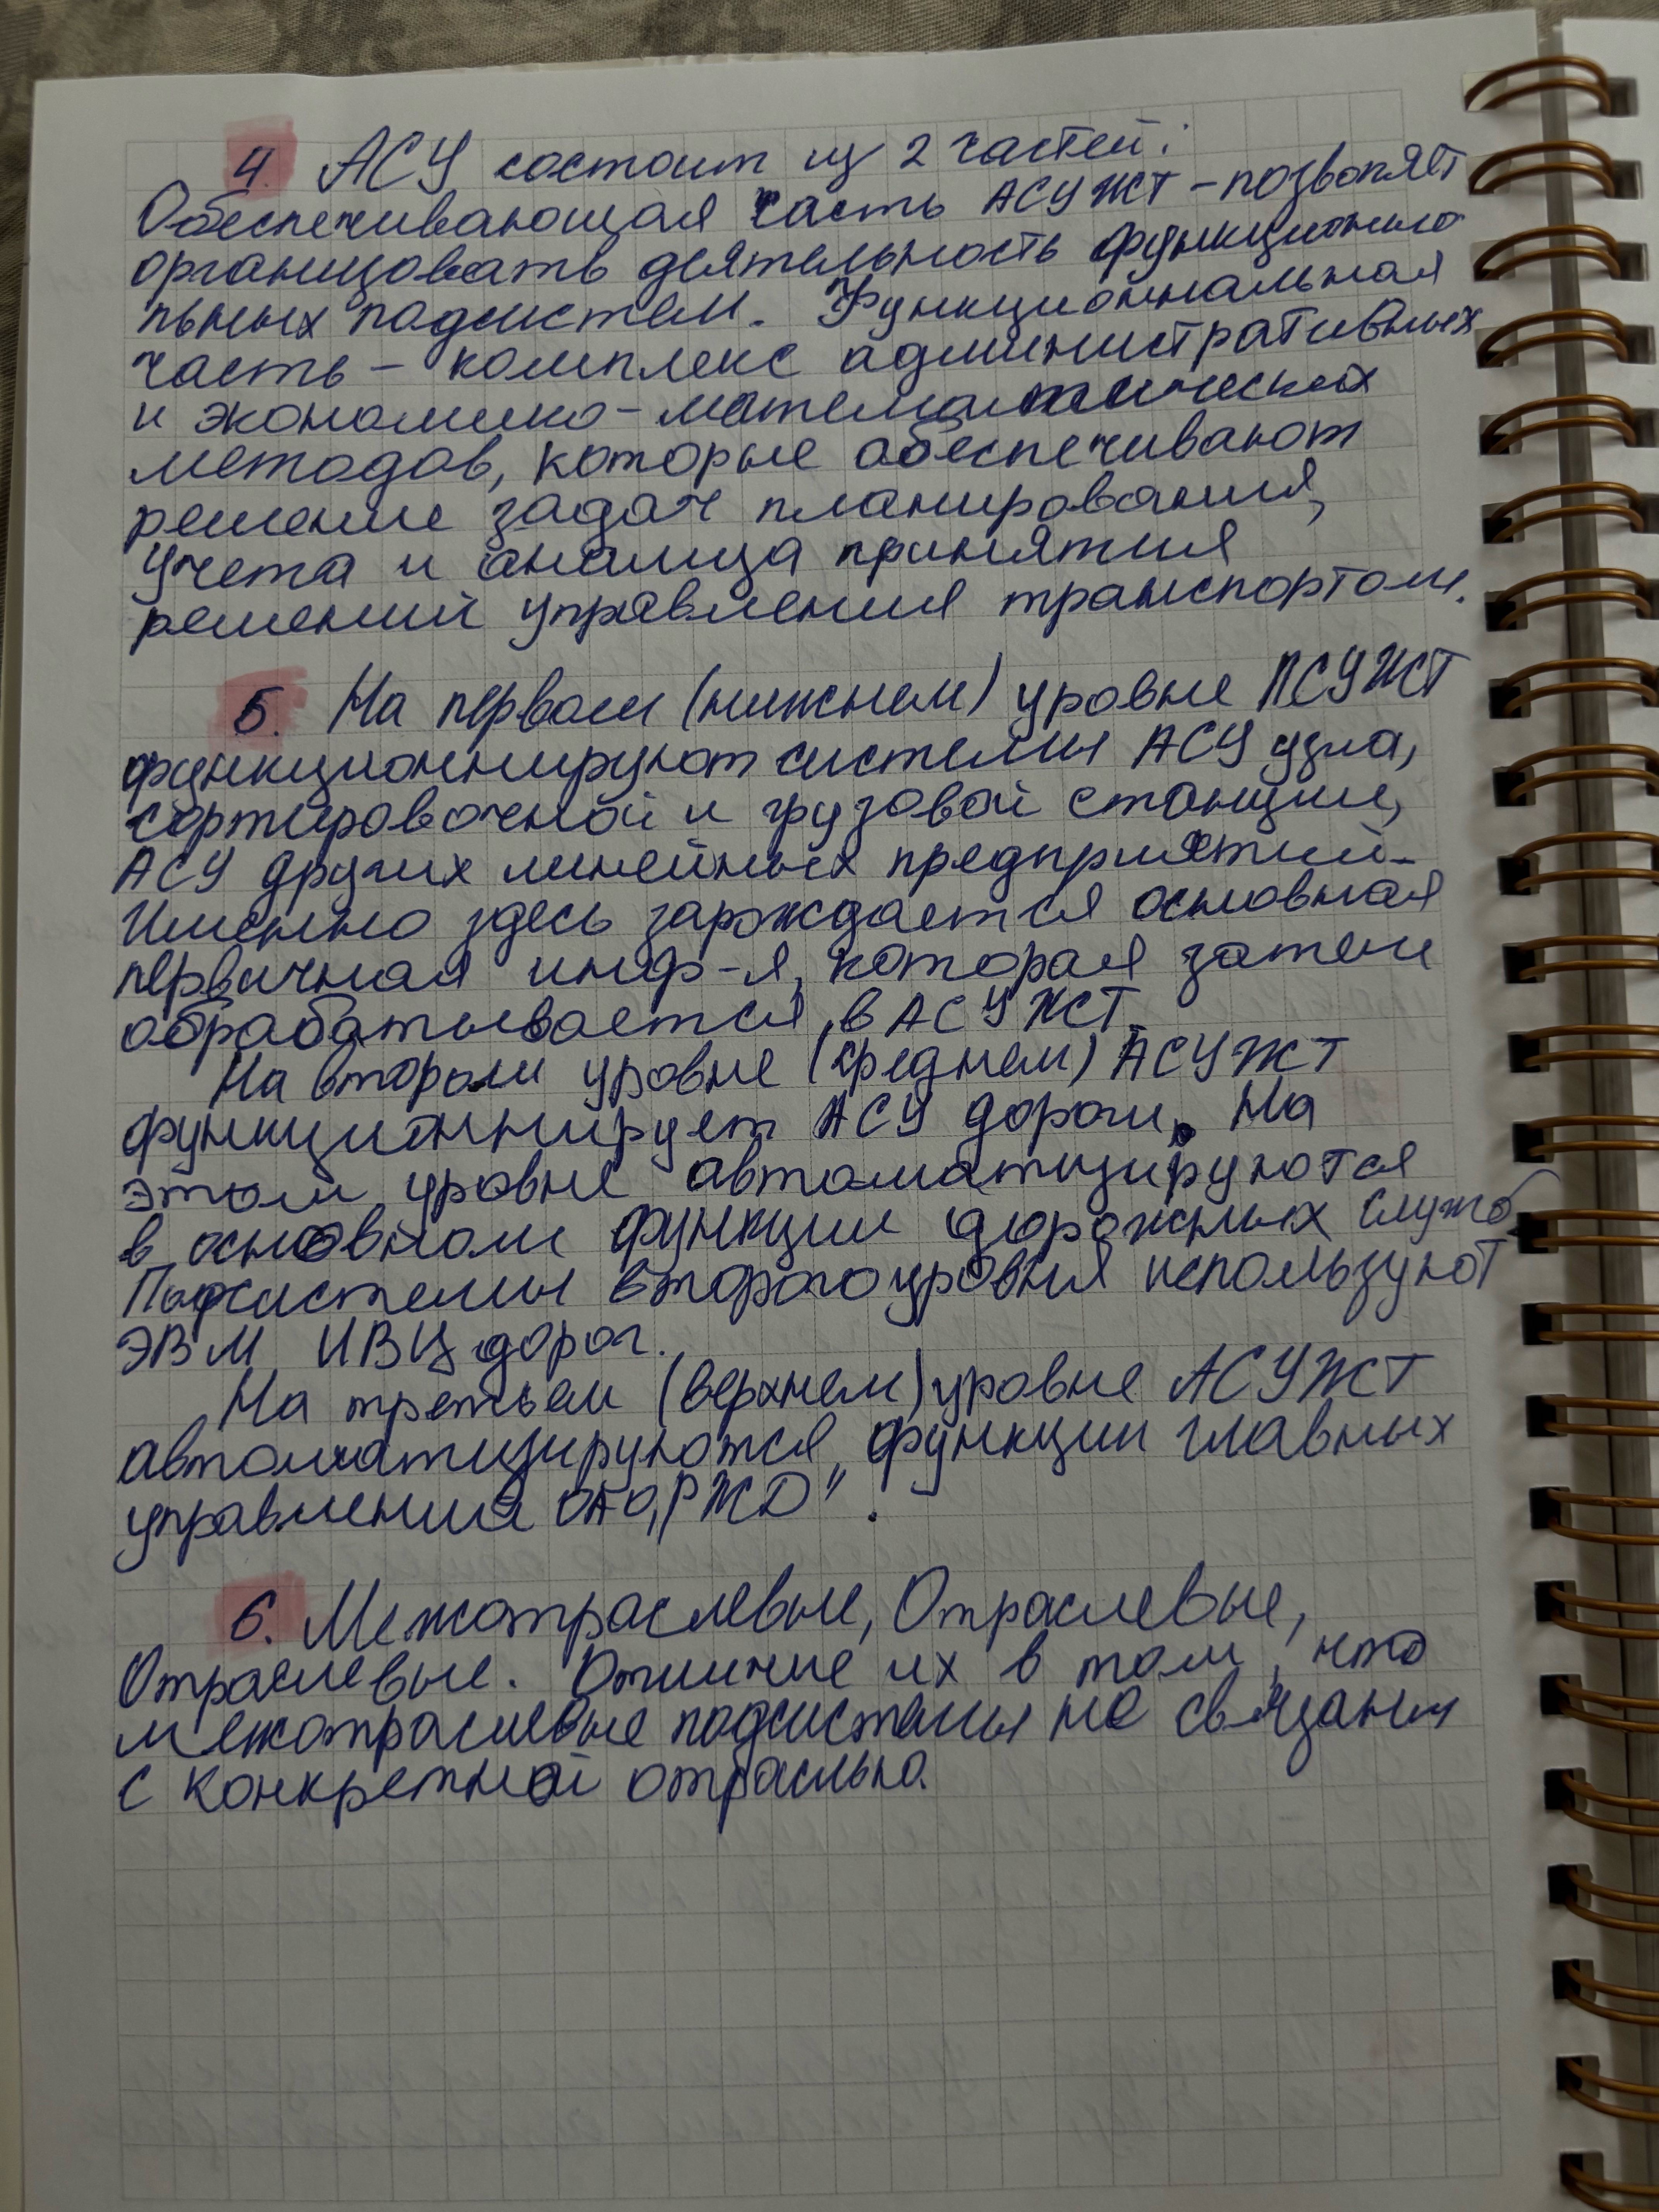 4. АСУ состоит из 2 частей:
Обеспечивающая часть АСУЖТ – позволяет
организовать деятельность функциона
льных подсистем. Функциональная
часть – комплекс административных
и экономико – математических
методов, которые обеспечивают
решение задач планирования,
учета и анализа принятия
решений управления транспортом.
5. На первом (нижнем) уровне АСУЖТ
функционнируют системы АСУ узла,
сортировочной и грузовой станции,
АСУ других линейных предприятий.
Именно здесь зарождается основная
первичная инф-я, которая затем
обрабатывается в АСУЖТ.
На втором уровне (среднем) АСУЖТ
функционнирует АСУ дороги. На
этом уровне автоматизируются
в основном функции дорожных служб
Подсистемы второго уровня используют
ЭВМ ИВЦ дорог.
На третьем (верхнем) уровне АСУЖТ
автоматизируются функции главных
управления ОАО „РЖД".
6. Межотраслевые, Отраслевые,
Отраслевые. Отличие их в том, что
межотраслевые подсистемы не связаны
с конкретной отраслью.